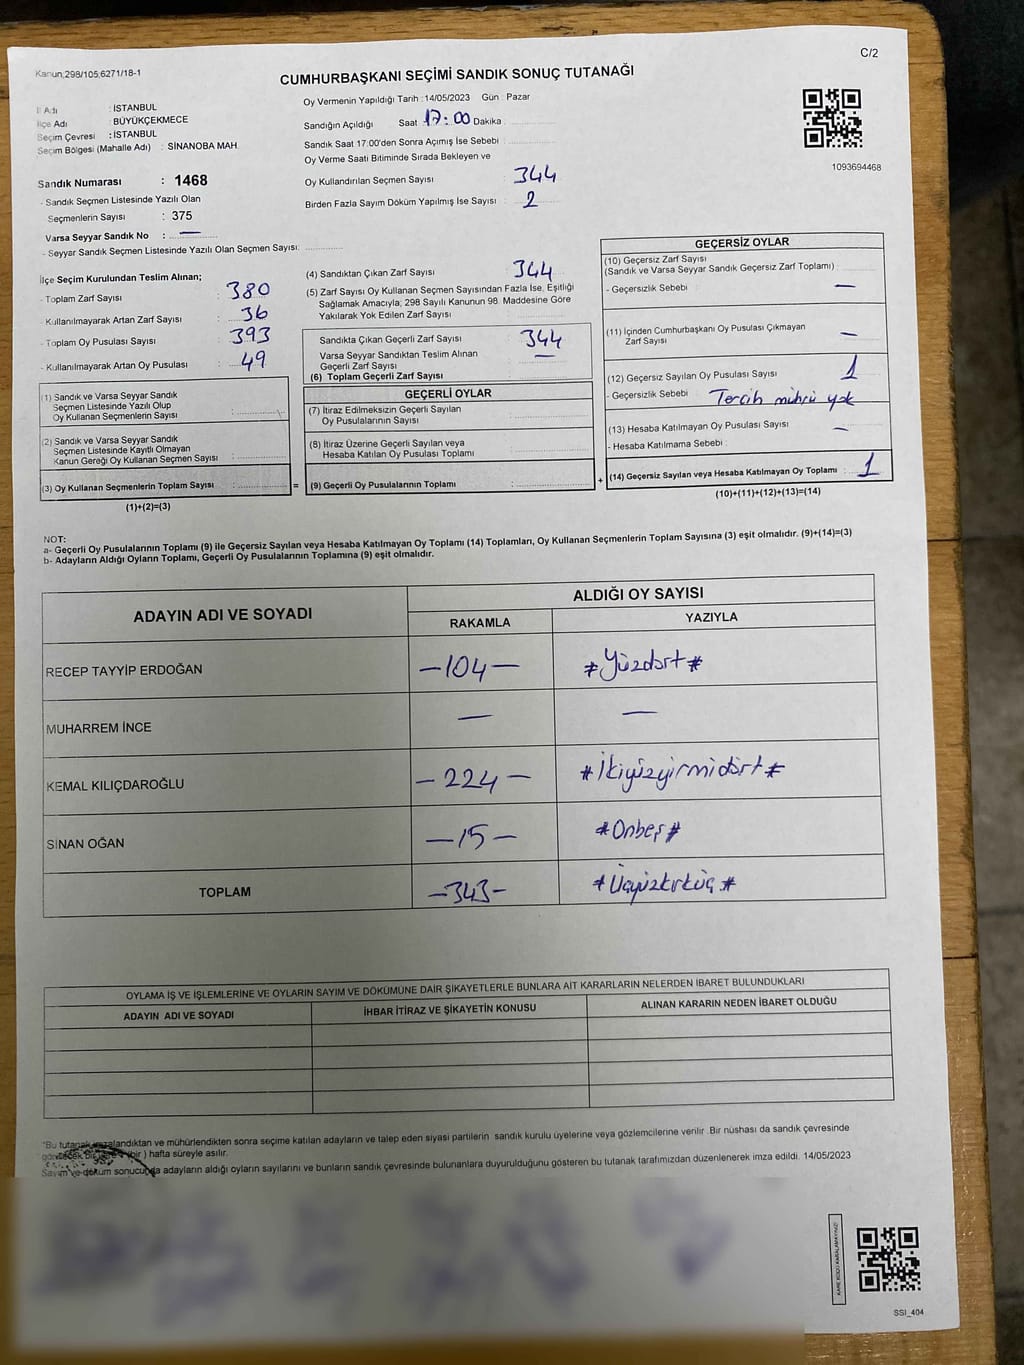 C/2
Kanun,298/105,6271/18-1
CUMHURBAŞKANI SEÇİMİ SANDIK SONUÇ TUTANAĞI
İl Adı : İSTANBUL
İlçe Adı : BÜYÜKÇEKMECE
Seçim Çevresi : İSTANBUL
Seçim Bölgesi (Mahalle Adı) : SİNANOBA MAH.
Sandık Numarası : 1468
- Sandık Seçmen Listesinde Yazılı Olan
Seçmenlerin Sayısı : 375
Varsa Seyyar Sandık No : —
- Seyyar Sandık Seçmen Listesinde Yazılı Olan Seçmen Sayısı:
Oy Vermenin Yapıldığı Tarih :14/05/2023 Gün : Pazar
Sandığın Açıldığı Saat 17:00 Dakika :
Sandık Saat 17:00'den Sonra Açımış İse Sebebi :
Oy Verme Saati Bitiminde Sırada Bekleyen ve
Oy Kullandırılan Seçmen Sayısı : 344
Birden Fazla Sayım Döküm Yapılmış İse Sayısı : 2
1093694468
İlçe Seçim Kurulundan Teslim Alınan;
- Toplam Zarf Sayısı : 380
- Kullanılmayarak Artan Zarf Sayısı : 36
- Toplam Oy Pusulası Sayısı : 393
- Kullanılmayarak Artan Oy Pusulası : 49
(1) Sandık ve Varsa Seyyar Sandık
Seçmen Listesinde Yazılı Olup
Oy Kullanan Seçmenlerin Sayısı :
(2) Sandık ve Varsa Seyyar Sandık
Seçmen Listesinde Kayıtlı Olmayan
Kanun Gereği Oy Kullanan Seçmen Sayısı :
(3) Oy Kullanan Seçmenlerin Toplam Sayısı :
(1)+(2)=(3)
(4) Sandıktan Çıkan Zarf Sayısı : 344
(5) Zarf Sayısı Oy Kullanan Seçmen Sayısından Fazla İse, Eşitliği
Sağlamak Amacıyla; 298 Sayılı Kanunun 98. Maddesine Göre
Yakılarak Yok Edilen Zarf Sayısı :
Sandıkta Çıkan Geçerli Zarf Sayısı : 344
Varsa Seyyar Sandıktan Teslim Alınan
Geçerli Zarf Sayısı : —
(6) Toplam Geçerli Zarf Sayısı :
GEÇERLİ OYLAR
(7) İtiraz Edilmeksizin Geçerli Sayılan
Oy Pusulalarının Sayısı :
(8) İtiraz Üzerine Geçerli Sayılan veya
Hesaba Katılan Oy Pusulası Toplamı :
= (9) Geçerli Oy Pusulalarının Toplamı :
GEÇERSİZ OYLAR
(10) Geçersiz Zarf Sayısı
(Sandık ve Varsa Seyyar Sandık Geçersiz Zarf Toplamı) :
- Geçersizlik Sebebi : —
(11) İçinden Cumhurbaşkanı Oy Pusulası Çıkmayan
Zarf Sayısı : —
(12) Geçersiz Sayılan Oy Pusulası Sayısı : 1
- Geçersizlik Sebebi : Tercih mührü yok
(13) Hesaba Katılmayan Oy Pusulası Sayısı : —
- Hesaba Katılmama Sebebi :
+ (14) Geçersiz Sayılan veya Hesaba Katılmayan Oy Toplamı : 1
(10)+(11)+(12)+(13)=(14)
NOT:
a- Geçerli Oy Pusulalarının Toplamı (9) ile Geçersiz Sayılan veya Hesaba Katılmayan Oy Toplamı (14) Toplamları, Oy Kullanan Seçmenlerin Toplam Sayısına (3) eşit olmalıdır. (9)+(14)=(3)
b- Adayların Aldığı Oyların Toplamı, Geçerli Oy Pusulalarının Toplamına (9) eşit olmalıdır.
ADAYIN ADI VE SOYADI ALDIĞI OY SAYISI
RAKAMLA YAZIYLA
RECEP TAYYİP ERDOĞAN —104— #Yüzdört#
MUHARREM İNCE — —
KEMAL KILIÇDAROĞLU —224— #İkiyüzyirmidört#
SİNAN OĞAN —15— #Onbeş#
TOPLAM —343— #Üçyüzkırküç#
OYLAMA İŞ VE İŞLEMLERİNE VE OYLARIN SAYIM VE DÖKÜMÜNE DAİR ŞİKAYETLERLE BUNLARA AİT KARARLARIN NELERDEN İBARET BULUNDUKLARI
ADAYIN ADI VE SOYADI İHBAR İTİRAZ VE ŞİKAYETİN KONUSU ALINAN KARARIN NEDEN İBARET OLDUĞU
"Bu tutanak imzalandıktan ve mühürlendikten sonra seçime katılan adayların ve talep eden siyasi partilerin sandık kurulu üyelerine veya gözlemcilerine verilir .Bir nüshası da sandık çevresinde
(bir ) hafta süreyle asılır.
Sayım ve döküm sonucunda adayların aldığı oyların sayılarını ve bunların sandık çevresinde bulunanlara duyurulduğunu gösteren bu tutanak tarafımızdan düzenlenerek imza edildi. 14/05/2023
KARE KODU KARALAMAYINIZ!
SSI_404